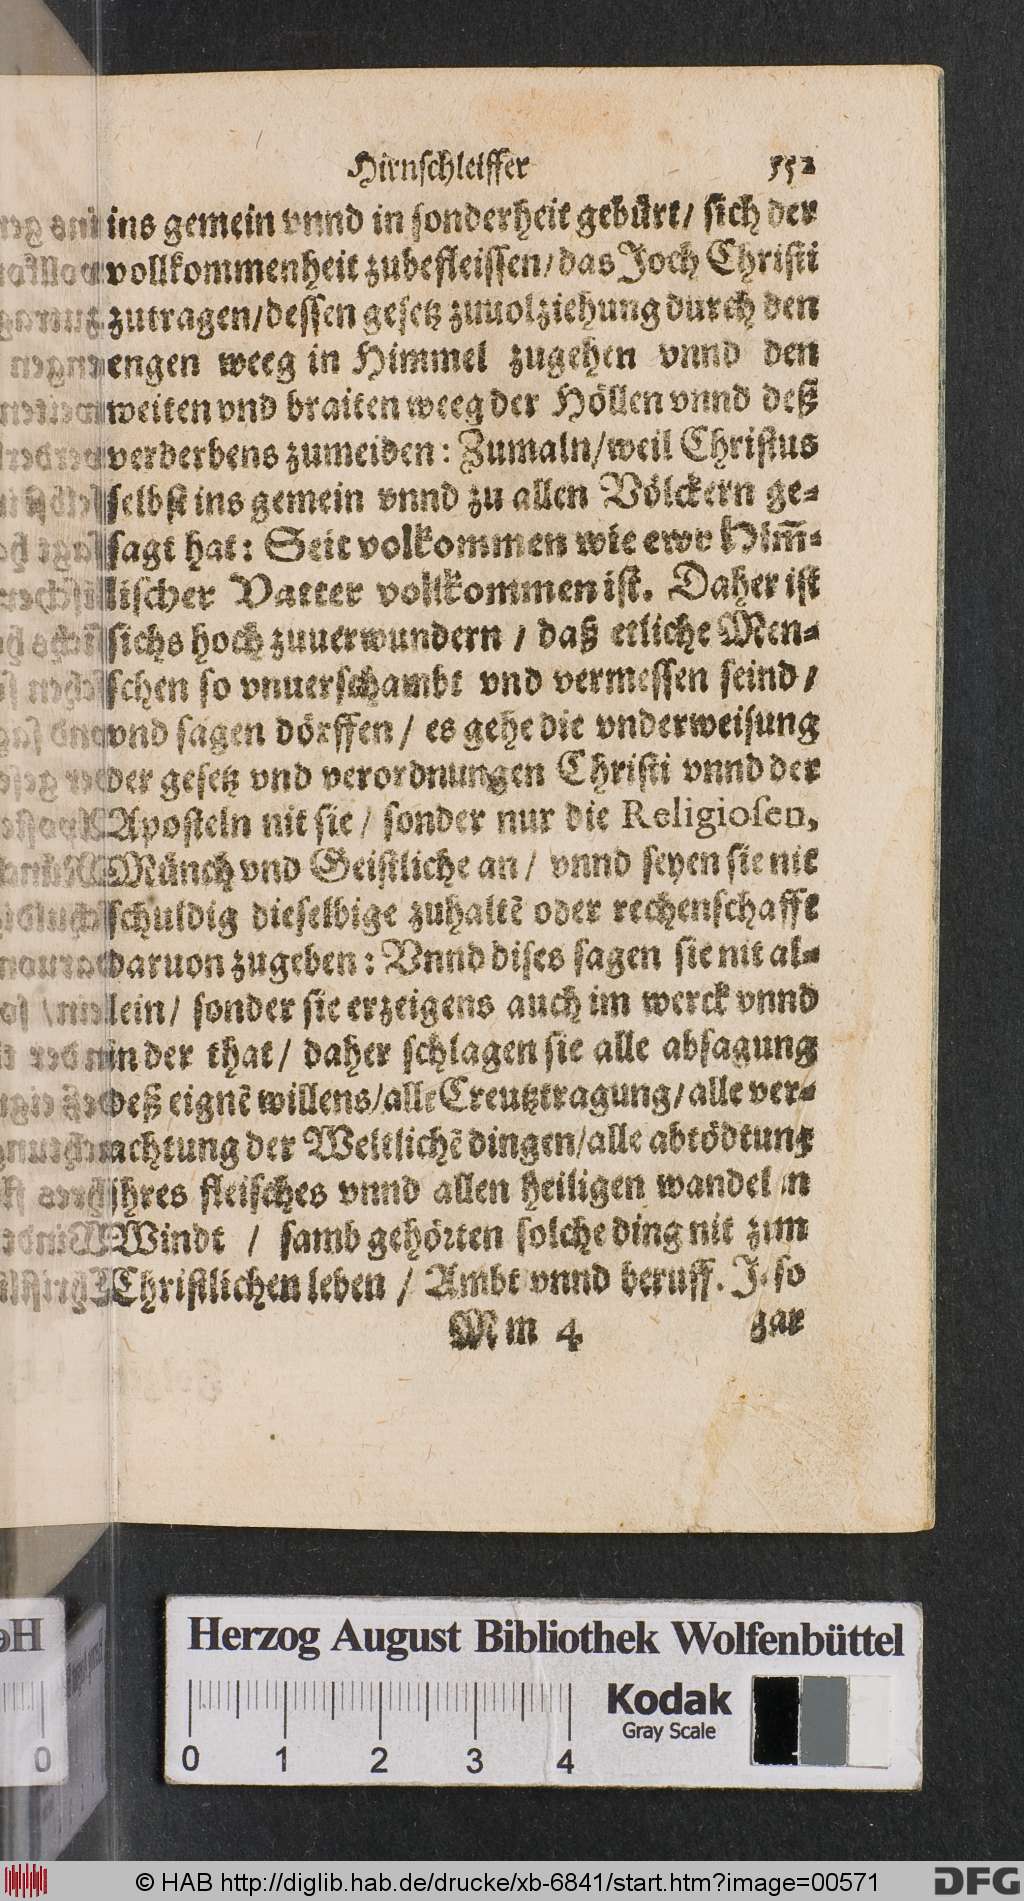 Hirnschleiffer 552
ins gemein vnnd in sonderheit gebürt/ sich der
vollkommenheit zubefleissen/das Joch Christi
zutragen/dessen gesetz zuuolziehung durch den
engen weeg in Himmel zugehen vnnd den
weiten vnd braiten weeg der Höllen vnnd deß
verderbens zumeiden: Zumaln/weil Christus
selbst ins gemein vnnd zu allen Völckern ge-
sagt hat: Seit volkommen wie ewr Him̅-
lischer Vatter vollkommen ist. Daher ist
sichs hoch zuuerwundern / daß etliche Men-
schen so vnuerschambt vnd vermessen seind /
vnd sagen dörffen / es gehe die vnderweisung
der gesetz vnd verordnungen Christi vnnd der
Aposteln nit sie / sonder nur die Religiosen,
Münch vnd Geistliche an / vnnd seyen sie nit
schuldig dieselbige zuhaltẽ oder rechenschafft
daruon zugeben: Vnnd dises sagen sie nit al-
lein/ sonder sie erzeigens auch im werck vnnd
in der that/ daher schlagen sie alle absagung
deß eignẽ willens/alle Creutztragung/alle ver-
achtung der Weltlichẽ dingen/alle abtödtung
ihres fleisches vnnd allen heiligen wandel in
Windt / samb gehörten solche ding nit zum
Christlichen leben / Ambt vnnd beruff. Ja so
Mm 4 gar
Herzog August Bibliothek Wolfenbüttel
Kodak
Gray Scale
0 1 2 3 4
© HAB http://diglib.hab.de/drucke/xb-6841/start.htm?image=00571
DFG